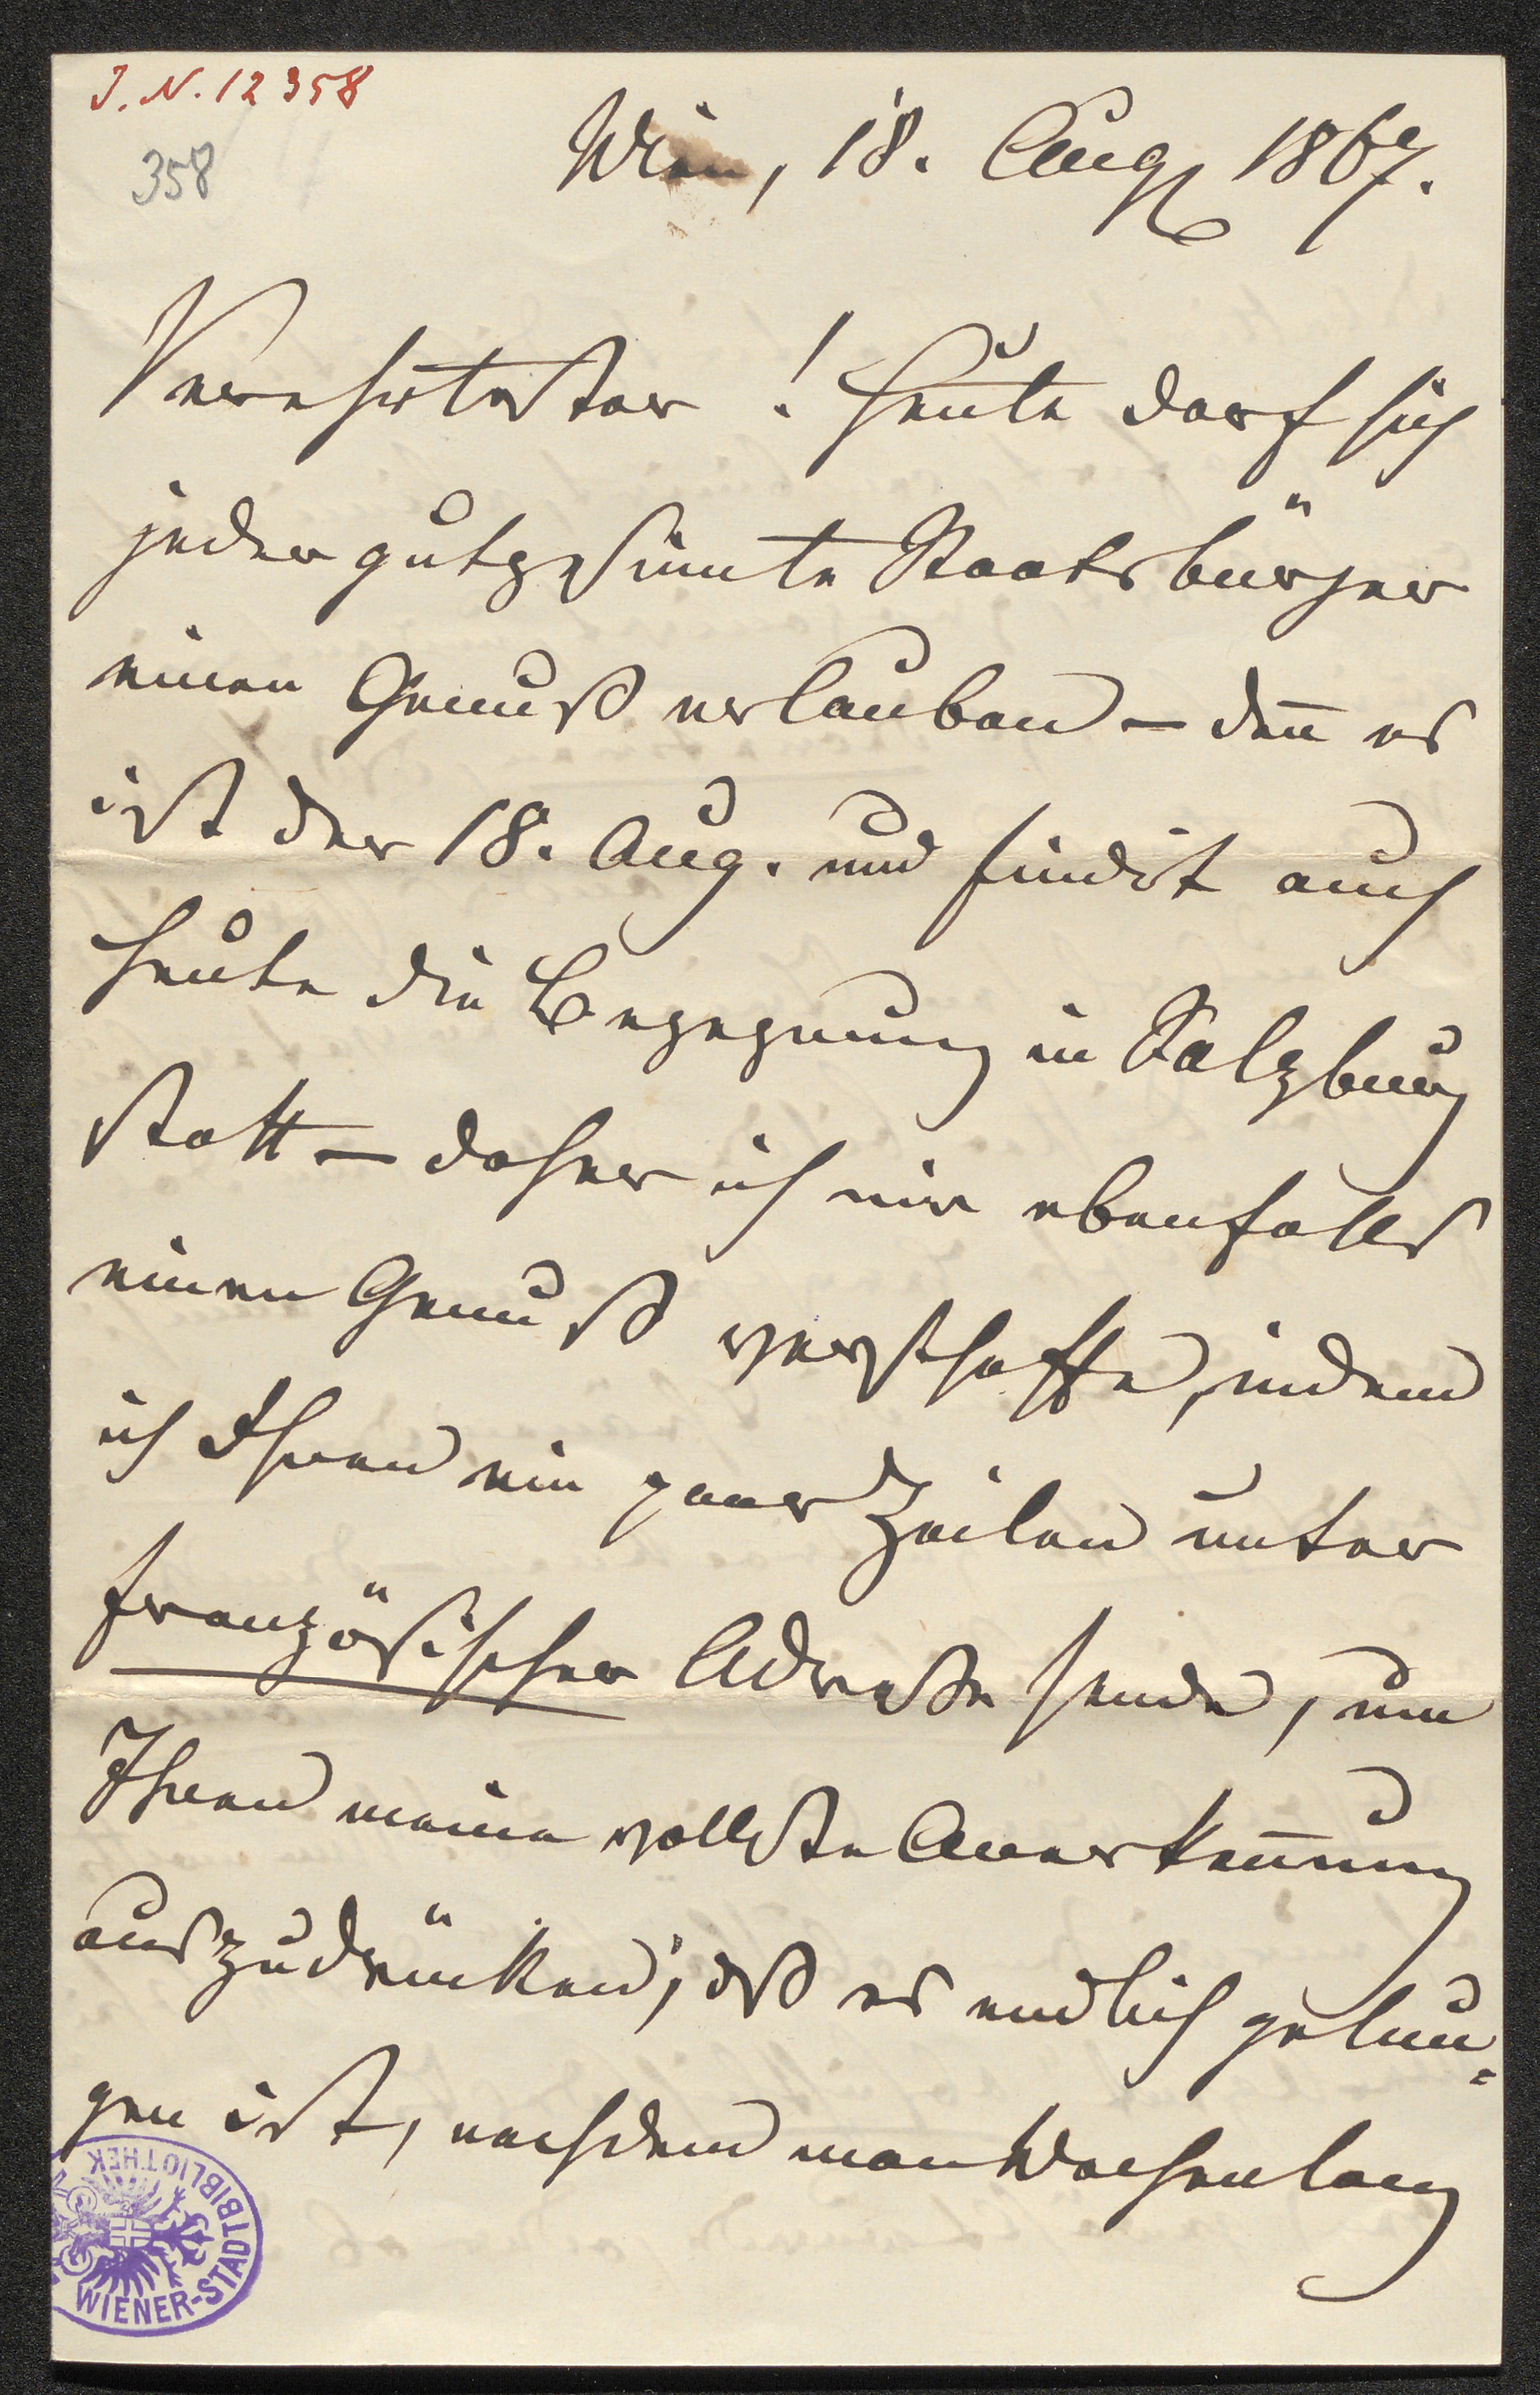 J. N. 12358
358
Wien, 18. Aug 1867.
Verehrtester! Heute darf sich
jeder gutgesinnte Staatsbürger
einen Genuß erlauben – den̄ es
ist der 18. Aug. und findet auch
heute die Begegnung in Salzburg
statt – daher ich mir ebenfalls
einen Genuß verschaffe, indem
ich Ihnen ein paar Zeilen unter
französischer Adresse sende, um
Ihnen meine vollste Anerken̄ung
auszudrücken, daß es endlich gelun=
gen ist, nachdem man Wochen lang
WIENER-STADTBIBLIOTHEK